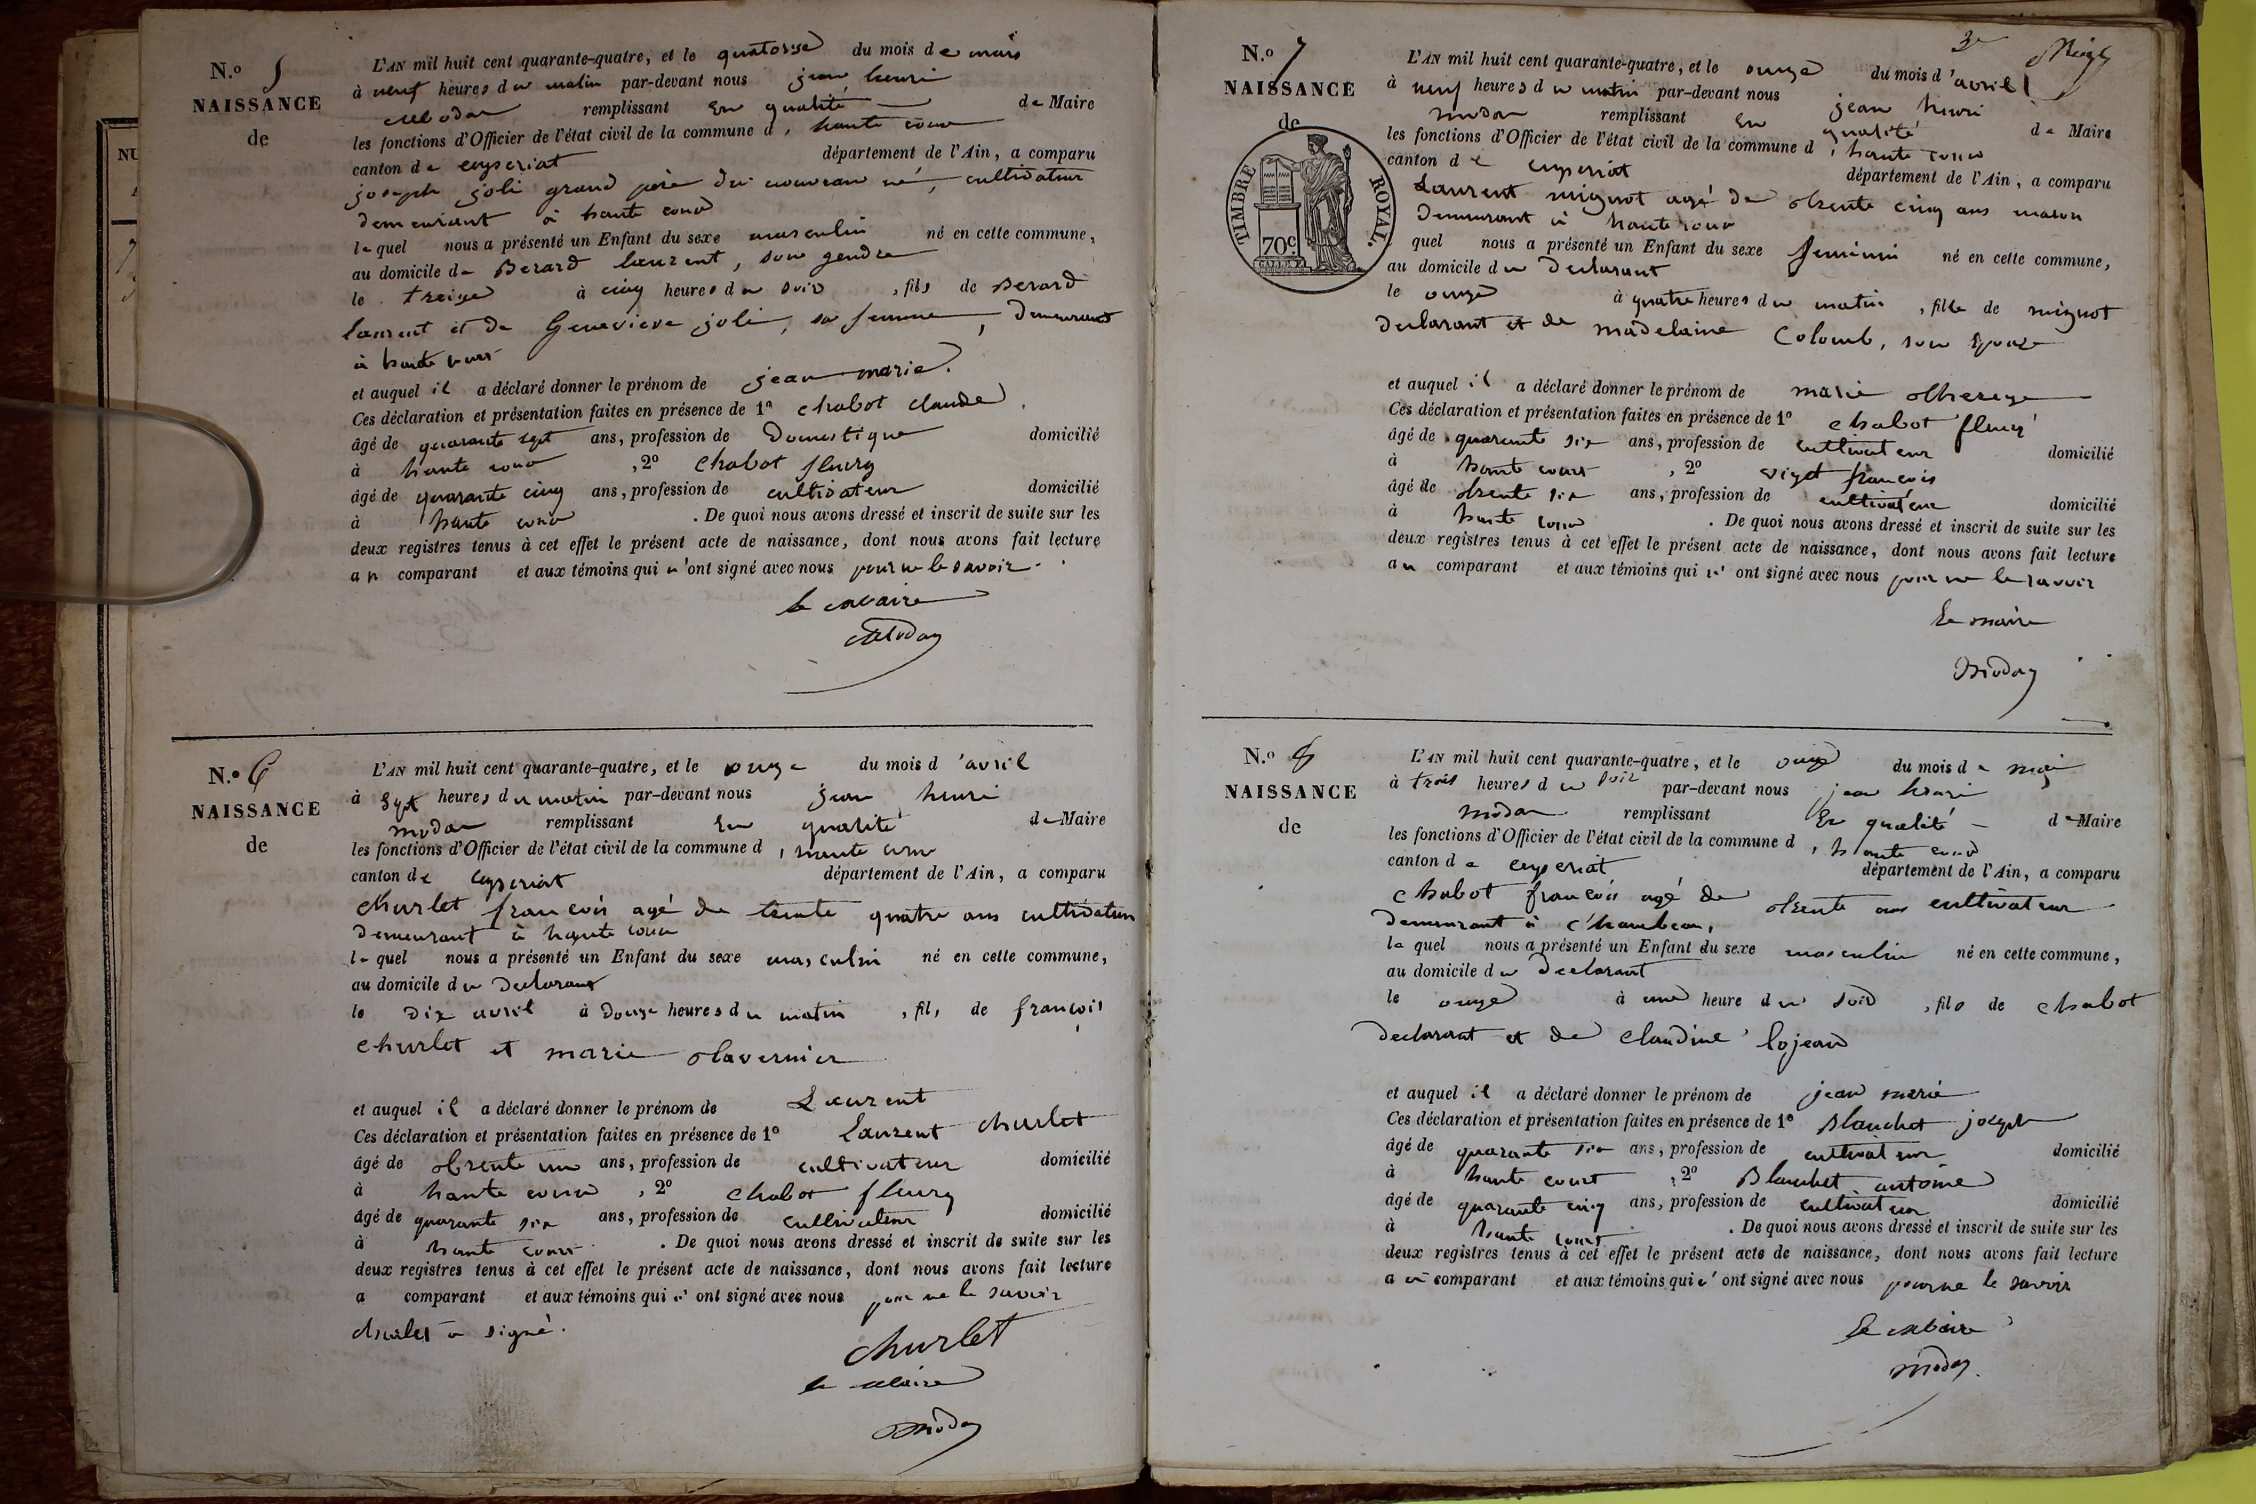 N.o 5
NAISSANCE
de
L'AN mil huit cent quarante-quatre, et le quatorse du mois de mars
à neuf heures du matin par-devant nous jean henri
Modas remplissant en qualité de Maire
les fonctions d'Officier de l'état civil de la commune d, haute cour
canton de ceyseriat département de l'Ain, a comparu
joseph joli grand père du nouveau né, cultivateur
demeurant à haute cour
lequel nous a présenté un Enfant du sexe masculin né en cette commune,
au domicile de Berard laurent, son gendre
le treize à cinq heures du soir, fils de Berard
laurent et de Genevieve joli, sa femme, demeurant
à haute cour
et auquel il a déclaré donner le prénom de jean marie.
Ces déclaration et présentation faites en présence de 1o chabot claude,
âgé de quarante sept ans, profession de Domestique domicilié
à haute cour, 2o chabot fleury
âgé de quarante cinq ans, profession de cultivateur domicilié
à haute cour. De quoi nous avons dressé et inscrit de suite sur les
deux registres tenus à cet effet le présent acte de naissance, dont nous avons fait lecture
au comparant et aux témoins qui n'ont signé avec nous pour ne le savoir.
le Maire
Moday
N.o 6
NAISSANCE
de
L'AN mil huit cent quarante-quatre, et le onze du mois d'avril
à sept heures du matin par-devant nous jean henri
modas remplissant En qualité de Maire
les fonctions d'Officier de l'état civil de la commune d, haute cour
canton de ceyseriat département de l'Ain, a comparu
churlet francois agé de trente quatre ans cultivateur
demeurant à haute cour
lequel nous a présenté un Enfant du sexe masculin né en cette commune,
au domicile du declarant
le dix avril à douze heures du matin, fils de françois
churlet et marie
et auquel il a déclaré donner le prénom de Laurent
Ces déclaration et présentation faites en présence de 1o laurent churlet
âgé de trente un ans, profession de cultivateur domicilié
à haute cour, 2o chabot fleury
âgé de quarante six ans, profession de cultivateur domicilié
à haute cour. De quoi nous avons dressé et inscrit de suite sur les
deux registres tenus à cet effet le présent acte de naissance, dont nous avons fait lecture
a comparant et aux témoins qui n'ont signé avec nous pour ne le savoir
churlet a signé.
churlet
le Maire
Moday
3e
N.o 7
NAISSANCE
de
TIMBRE ROYAL.
70c
L'AN mil huit cent quarante-quatre, et le onze du mois d'avril
à neuf heures du matin par-devant nous jean henri
modas remplissant en qualité de Maire
les fonctions d'Officier de l'état civil de la commune d, haute cour
canton de ceyseriat département de l'Ain, a comparu
Laurent mignot agé de trente cinq ans macon
demeurant à haute cour
quel nous a présenté un Enfant du sexe feminin né en cette commune,
au domicile du declarant
le onze à quatre heures du matin, fille de mignot
declarant et de madelaine Colomb, son Epouze
et auquel il a déclaré donner le prénom de marie
Ces déclaration et présentation faites en présence de 1o chabot fleury
âgé de quarante six ans, profession de cultivateur domicilié
à haute cour, 2o francois
âgé de trente six ans, profession de cultivateur domicilié
à haute cour. De quoi nous avons dressé et inscrit de suite sur les
deux registres tenus à cet effet le présent acte de naissance, dont nous avons fait lecture
au comparant et aux témoins qui n'ont signé avec nous pour ne le savoir
Le maire
Moday
N.o 8
NAISSANCE
de
L'AN mil huit cent quarante-quatre, et le onze du mois de mai
à trois heures du soir par-devant nous jean henri
modas remplissant En qualité de Maire
les fonctions d'Officier de l'état civil de la commune d, haute cour
canton de ceyseriat département de l'Ain, a comparu
chabot francois agé de trente ans cultivateur
demeurant à
lequel nous a présenté un Enfant du sexe masculin né en cette commune,
au domicile du declarant
le onze à une heure du soir, fils de chabot
declarant et de claudine lojean
et auquel il a déclaré donner le prénom de jean marie
Ces déclaration et présentation faites en présence de 1o Blanchet joseph
âgé de quarante six ans, profession de cultivateur domicilié
à haute court, 2o Blanchet antoine
âgé de quarante cinq ans, profession de cultivateur domicilié
à haute court. De quoi nous avons dressé et inscrit de suite sur les
deux registres tenus à cet effet le présent acte de naissance, dont nous avons fait lecture
au comparant et aux témoins qui n'ont signé avec nous pour ne le savoir
Le Maire
Moday